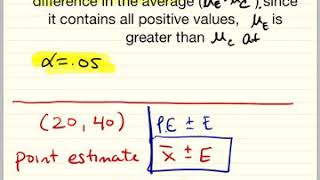 difference in the average (μE - μC), since
it contains all positive values, μE is
greater than μC at
α = .05
(20, 40) P.E ± E
point estimate x̄ ± E